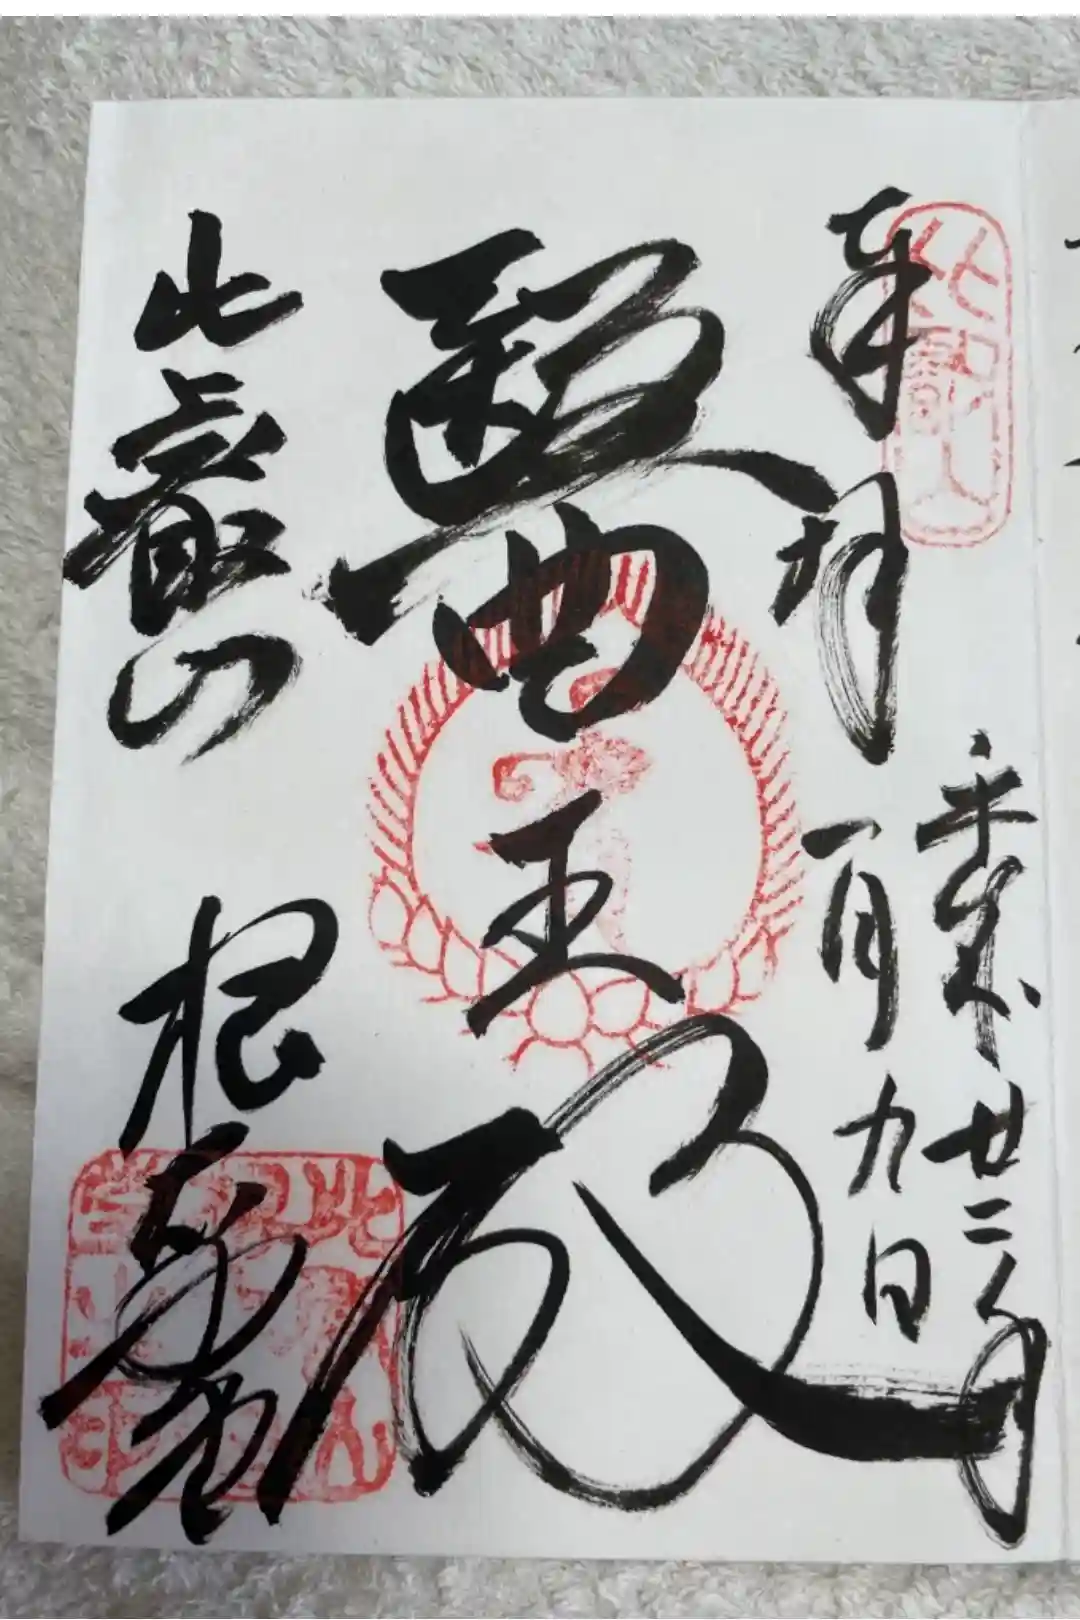 奉拝
平成廿二年
一月九日
醫王殿
比叡山
根本中堂